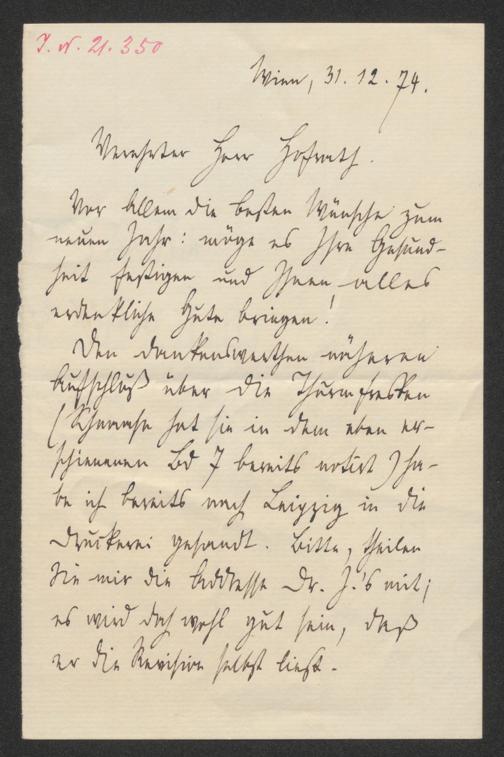 J. N. 21.350
Wien, 31. 12. 74.
Verehrter Herr Hofrath.
Vor Allem die besten Wünsche zum
neuen Jahr: möge es Ihre Gesund-
heit festigen und Ihnen alles
erdenkliche Gute bringen!
Den dankenswerthen näheren
Aufschluß über die Thurmfresken
(Schnaase hat sie in dem eben er-
schienenen Bd 7 bereits notirt) ha-
be ich bereits nach Leipzig in die
Druckerei gesandt. Bitte, theilen
Sie mir die Addresse Dr. J.'s mit;
es wird doch wohl gut sein, daß
er die Revision selbst liest.